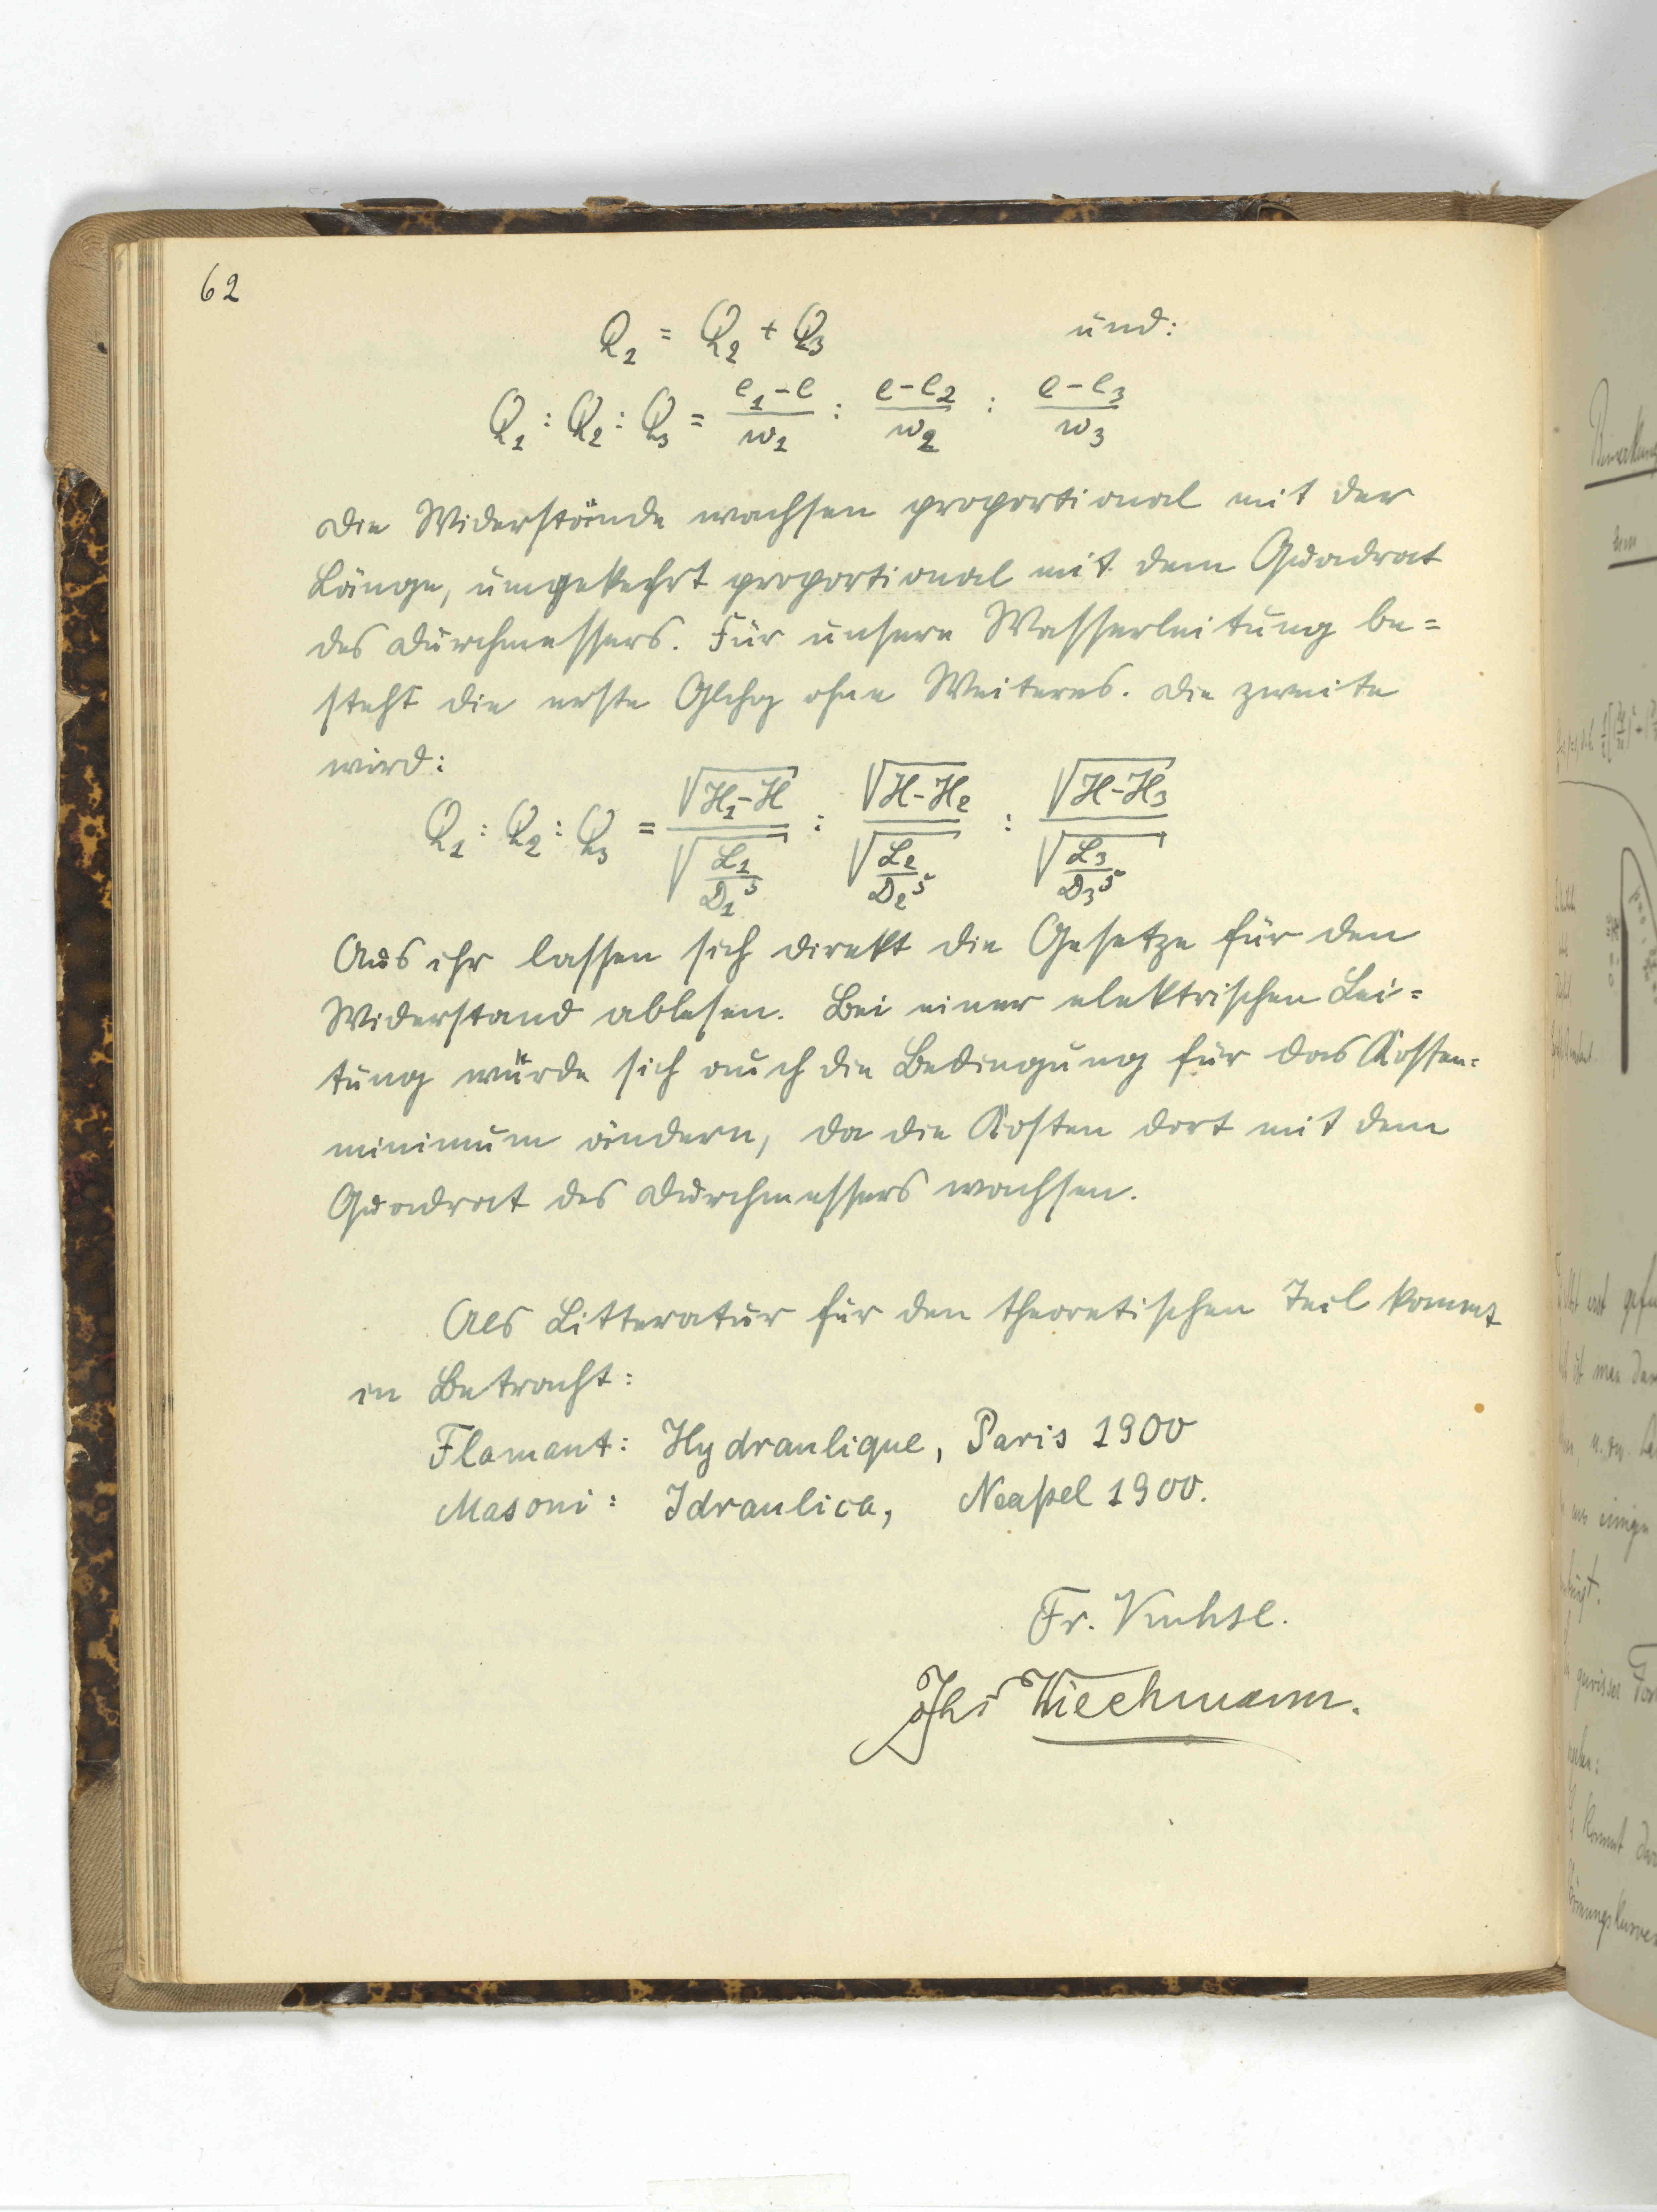 62
Q₁ = Q₂ + Q₃ und:
Q₁ : Q₂ : Q₃ = (e₁-e)/w₁ : (e-e₂)/w₂ : (e-e₃)/w₃
Die Widerstände wachsen proportional mit der
Länge, umgekehrt proportional mit dem Quadrat
des Durchmessers. Für unsere Wasserleitung be=
steht die erste Glchg ohne Weiteres. Die zweite
wird:
Q₁ : Q₂ : Q₃ = √(H₁-H)/√(L₁/D₁⁵) : √(H-H₂)/√(L₂/D₂⁵) : √(H-H₃)/√(L₃/D₃⁵)
Aus ihr lassen sich direkt die Gesetze für den
Widerstand ablesen. Bei einer elektrischen Lei=
tung würde sich auch die Bedingung für das Kosten=
minimum ändern, da die Kosten dort mit dem
Quadrat des Durchmessers wachsen.
Als Litteratur für den theoretischen Teil kommt
in Betracht:
Flamant: Hydraulique, Paris 1900
Masoni: Idraulica, Neapel 1900.
Fr.
Jhs Wiechmann.